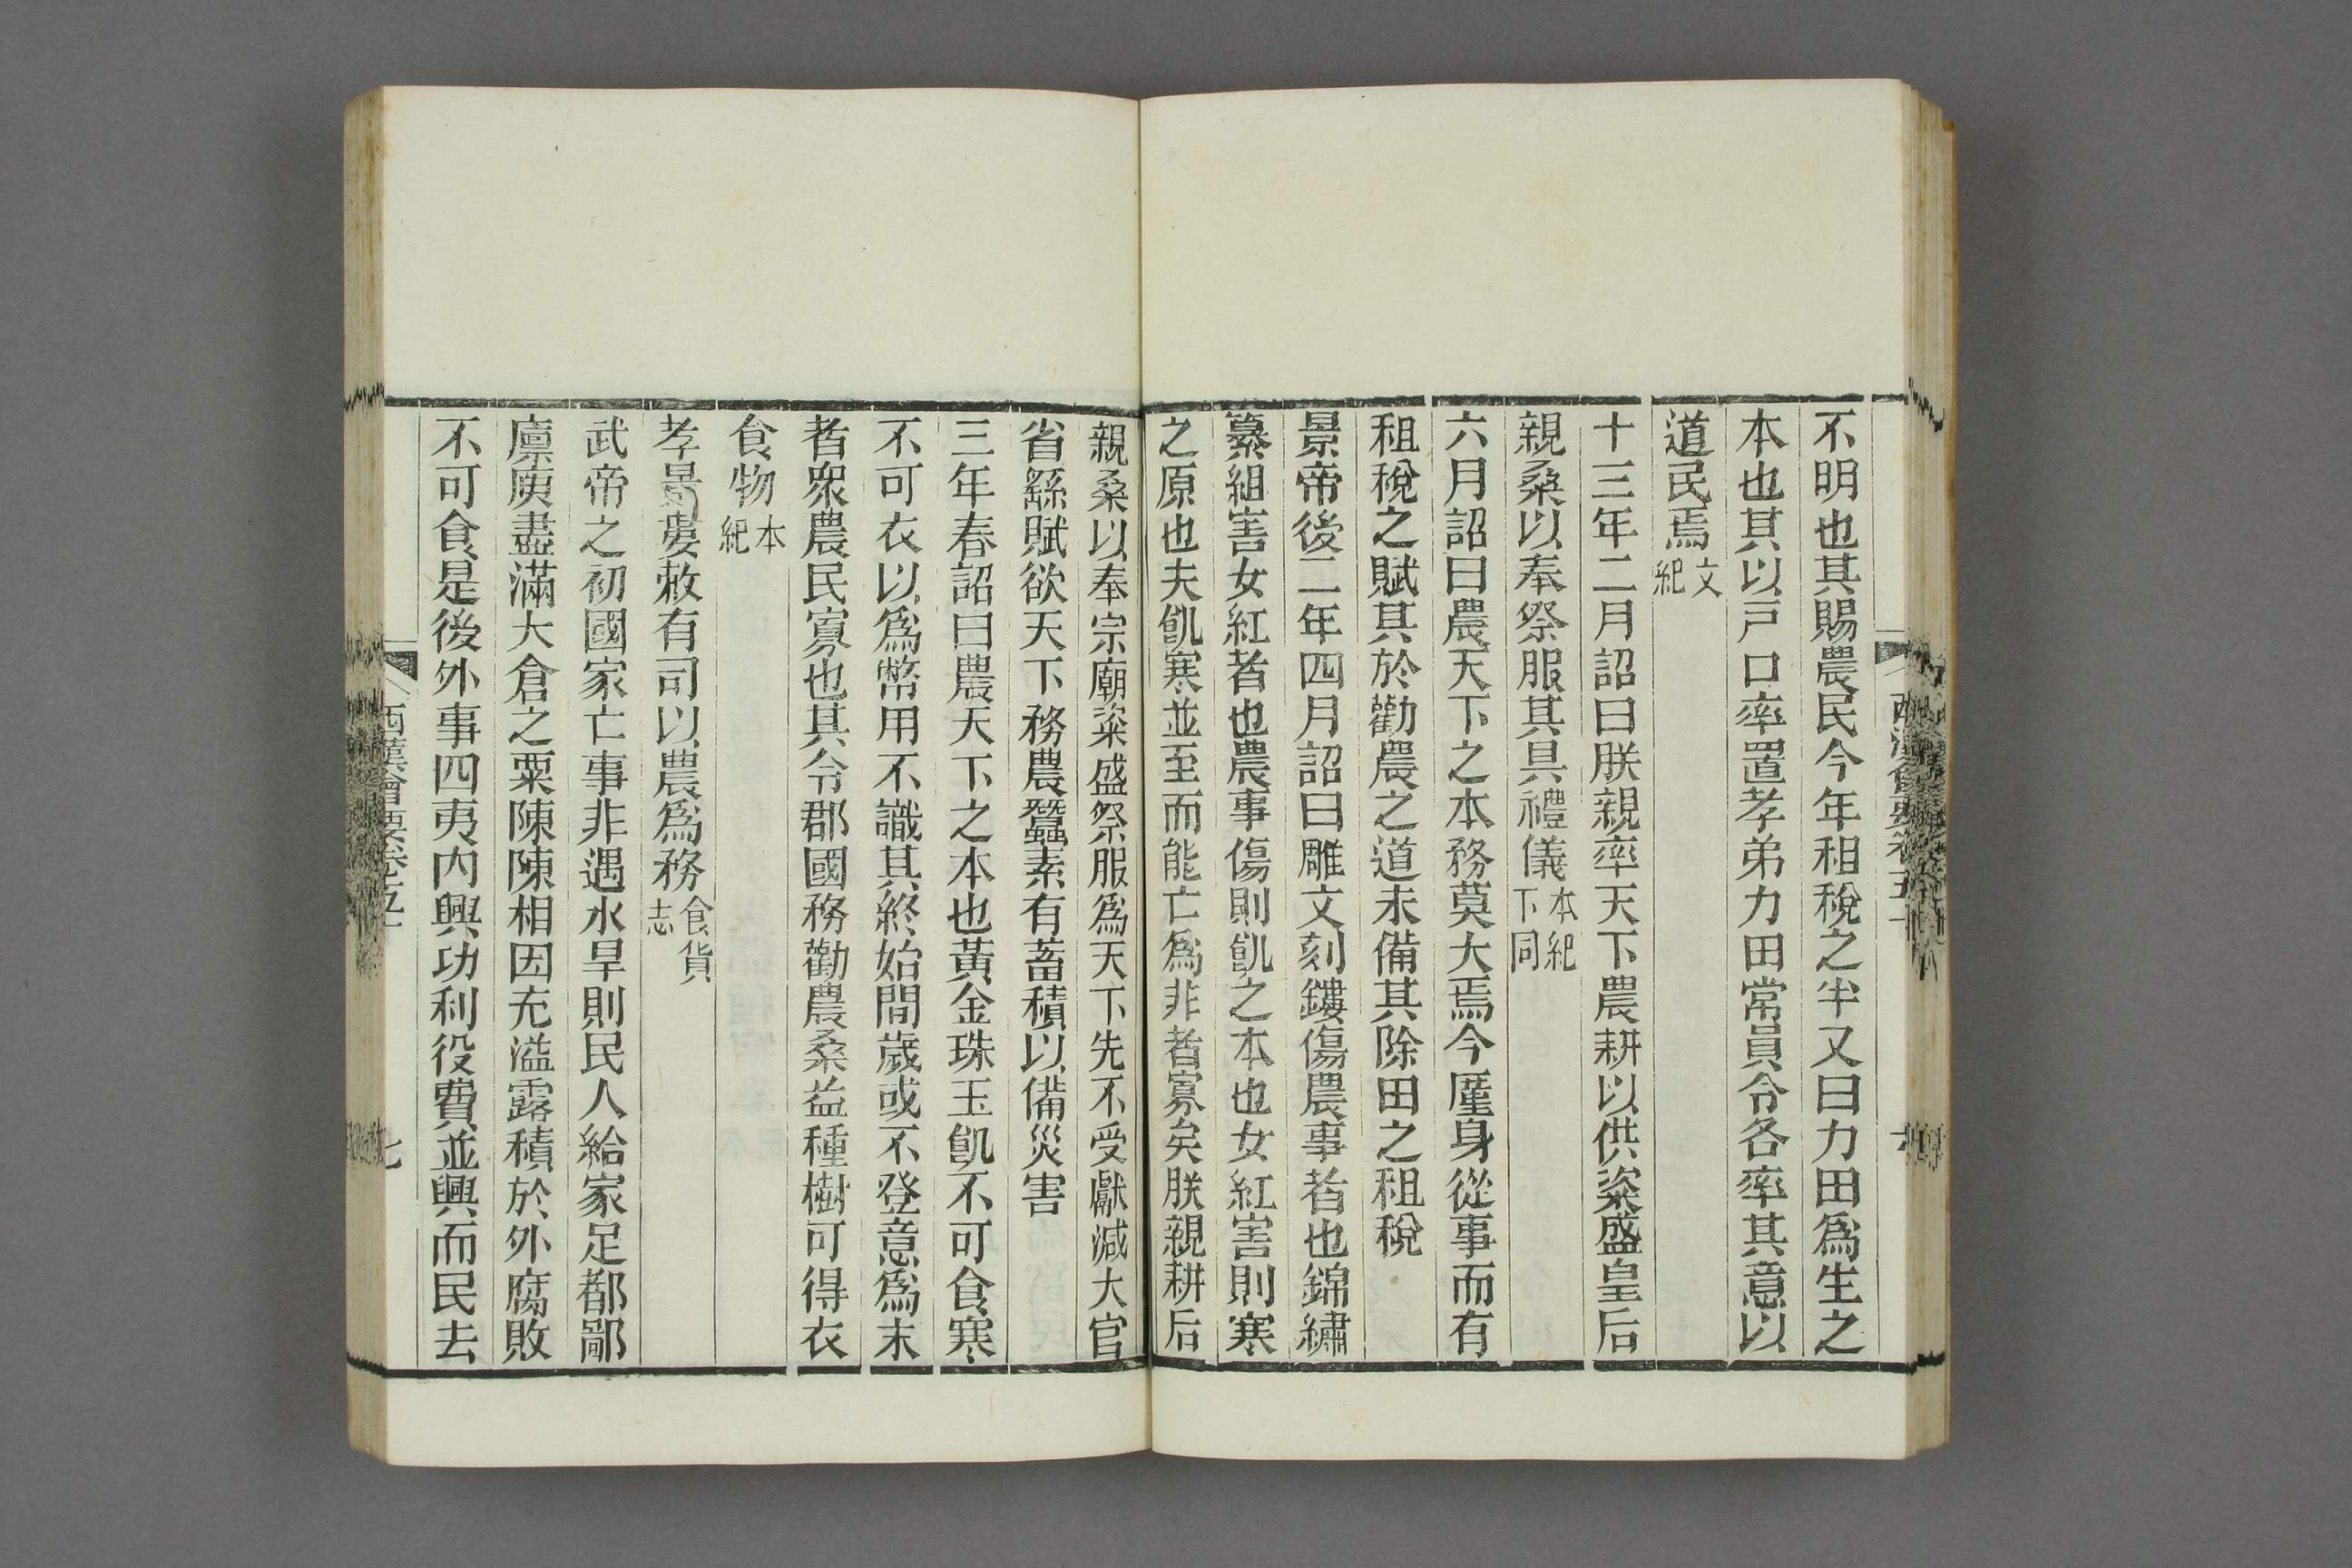 不明也其賜農民今年租稅之半又曰力田爲生之
本也其以戸口率置孝弟力田常員令各率其意以
道民焉文紀
十三年二月詔曰朕親率天下農耕以供粢盛皇后
親桑以奉祭服其具禮儀本紀下同
六月詔曰農天下之本務莫大焉今厪身從事而有
租稅之賦其於勸農之道未備其除田之租稅
景帝後二年四月詔曰雕文刻鏤傷農事者也錦繡
纂組害女紅者也農事傷則飢之本也女紅害則寒
之原也夫飢寒並至而能亡爲非者寡矣朕親耕后
親桑以奉宗廟粢盛祭服爲天下先不受獻減大官
省繇賦欲天下務農蠶素有蓄積以備災害
三年春詔曰農天下之本也黃金珠玉飢不可食寒
不可衣以爲幣用不識其終始間歲或不登意爲末
者衆農民寡也其令郡國務勸農桑益種樹可得衣
食物本紀
孝景婁敕有司以農爲務食貨志
武帝之初國家亡事非遇水旱則民人給家足都鄙
廩庾盡滿大倉之粟陳陳相因充溢露積於外腐敗
不可食是後外事四夷内興功利役費並興而民去
西漢會要卷五十
七